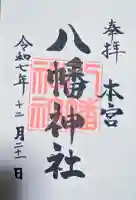 奉拝
本宮
八幡神社
令和七年十二月二十一日